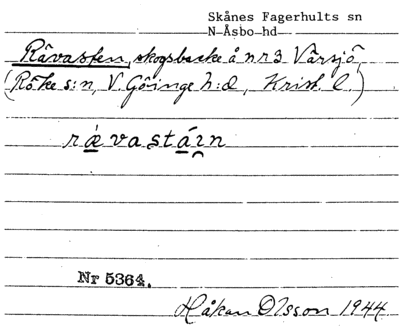 Skånes Fagerhults sn
N Åsbo hd
Rävasten, skogsbacke å nr 3 Vårsjö
(Röke s:n, V. Göinge h:d, Krist. l.)
rævastáin
Nr 5364.
Håkan Olsson 1944